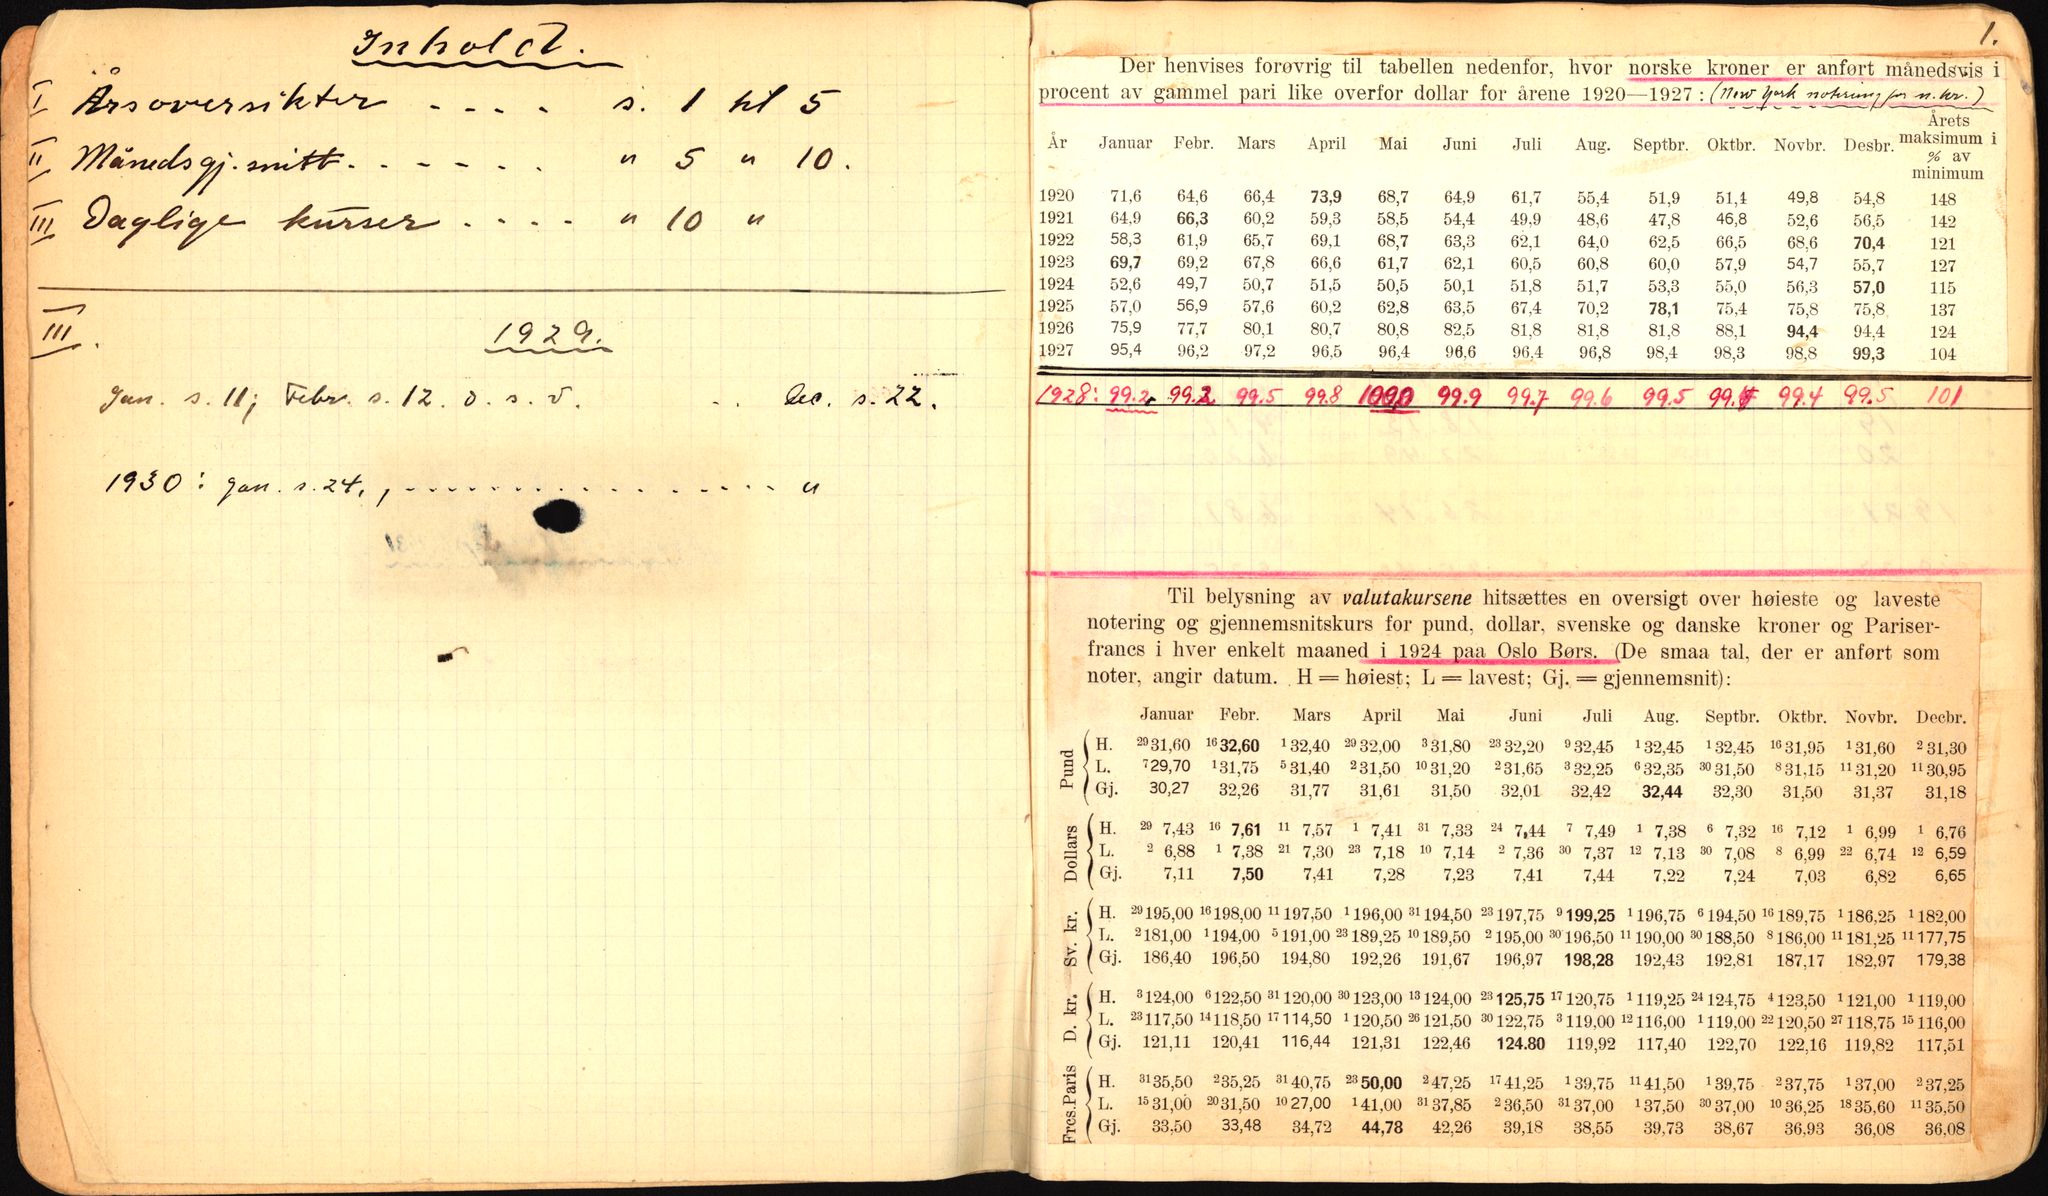 Inhold.
I Årsoversikter - - - - s. 1 til 5
II Månedsgj. snitt - - - - - - " 5 " 10.
III Daglige kurser - - - - " 10 "
III.
1929.
Jan. s. 11; Febr. s. 12. o. s. v. - - Dec. s. 22.
1930: Jan. s. 24, , - - - - - - - - - - - - - - - "
1.
Der henvises forøvrig til tabellen nedenfor, hvor norske kroner er anført månedsvis i
procent av gammel pari like overfor dollar for årene 1920—1927: (New York notering for n. kr.)
År Januar Febr. Mars April Mai Juni Juli Aug. Septbr. Oktbr. Novbr. Desbr. Årets maksimum i % av minimum
1920 71,6 64,6 66,4 73,9 68,7 64,9 61,7 55,4 51,9 51,4 49,8 54,8 148
1921 64,9 66,3 60,2 59,3 58,5 54,4 49,9 48,6 47,8 46,8 52,6 56,5 142
1922 58,3 61,9 65,7 69,1 68,7 63,3 62,1 64,0 62,5 66,5 68,6 70,4 121
1923 69,7 69,2 67,8 66,6 61,7 62,1 60,5 60,8 60,0 57,9 54,7 55,7 127
1924 52,6 49,7 50,7 51,5 50,5 50,1 51,8 51,7 53,3 55,0 56,3 57,0 115
1925 57,0 56,9 57,6 60,2 62,8 63,5 67,4 70,2 78,1 75,4 75,8 75,8 137
1926 75,9 77,7 80,1 80,7 80,8 82,5 81,8 81,8 81,8 88,1 94,4 94,4 124
1927 95,4 96,2 97,2 96,5 96,4 96,6 96,4 96,8 98,4 98,3 98,8 99,3 104
1928: 99.2 99.2 99.5 99.8 100,0 99.9 99.7 99.6 99.5 99.4 99.4 99.5 101
Til belysning av valutakursene hitsættes en oversigt over høieste og laveste
notering og gjennemsnitskurs for pund, dollar, svenske og danske kroner og Pariser-
francs i hver enkelt maaned i 1924 paa Oslo Børs. (De smaa tal, der er anført som
noter, angir datum. H = høiest; L = lavest; Gj. = gjennemsnit):
Januar Febr. Mars April Mai Juni Juli Aug. Septbr. Oktbr. Novbr. Decbr.
Pund
H. 29 31,60 16 32,60 1 32,40 29 32,00 3 31,80 23 32,20 9 32,45 1 32,45 1 32,45 16 31,95 1 31,60 2 31,30
L. 7 29,70 1 31,75 5 31,40 2 31,50 10 31,20 2 31,65 3 32,25 6 32,35 30 31,50 8 31,15 11 31,20 11 30,95
Gj. 30,27 32,26 31,77 31,61 31,50 32,01 32,42 32,44 32,30 31,50 31,37 31,18
Dollars
H. 29 7,43 16 7,61 11 7,57 1 7,41 31 7,33 24 7,44 7 7,49 1 7,38 6 7,32 16 7,12 1 6,99 1 6,76
L. 2 6,88 1 7,38 21 7,30 23 7,18 10 7,14 2 7,36 30 7,37 12 7,13 30 7,08 8 6,99 22 6,74 12 6,59
Gj. 7,11 7,50 7,41 7,28 7,23 7,41 7,44 7,22 7,24 7,03 6,82 6,65
Sv. kr.
H. 29 195,00 16 198,00 11 197,50 1 196,00 31 194,50 23 197,75 9 199,25 1 196,75 6 194,50 16 189,75 1 186,25 1 182,00
L. 2 181,00 1 194,00 5 191,00 23 189,25 10 189,50 2 195,00 30 196,50 11 190,00 30 188,50 8 186,00 11 181,25 11 177,75
Gj. 186,40 196,50 194,80 192,26 191,67 196,97 198,28 192,43 192,81 187,17 182,97 179,38
D. kr.
H. 3 124,00 6 122,50 31 120,00 30 123,00 13 124,00 23 125,75 17 120,75 1 119,25 24 124,75 4 123,50 1 121,00 1 119,00
L. 23 117,50 14 118,50 17 114,50 1 120,50 26 121,50 30 122,75 3 119,00 12 116,00 1 119,00 22 120,50 27 118,75 15 116,00
Gj. 121,11 120,41 116,44 121,31 122,46 124.80 119,92 117,40 122,70 122,16 119,82 117,51
Frcs.Paris
H. 31 35,50 2 35,25 31 40,75 23 50,00 2 47,25 17 41,25 1 39,75 11 41,50 1 39,75 2 37,75 1 37,00 2 37,25
L. 15 31,00 20 31,50 10 27,00 1 41,00 31 37,85 2 36,50 31 37,00 1 37,50 30 37,00 10 36,25 18 35,60 11 35,50
Gj. 33,50 33,48 34,72 44,78 42,26 39,18 38,55 39,73 38,67 36,93 36,08 36,08